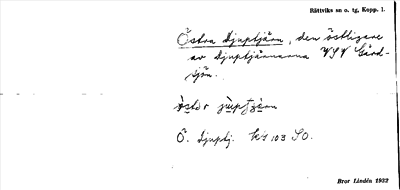 Rättviks sn o. tg, Kopp. l.
Östra Djuptjärn, den östligare
av Djuptjärnarna VSV Gård-
sjön.
Ö. Djuptj. Kt 103 SO.
Bror Lindén 1932